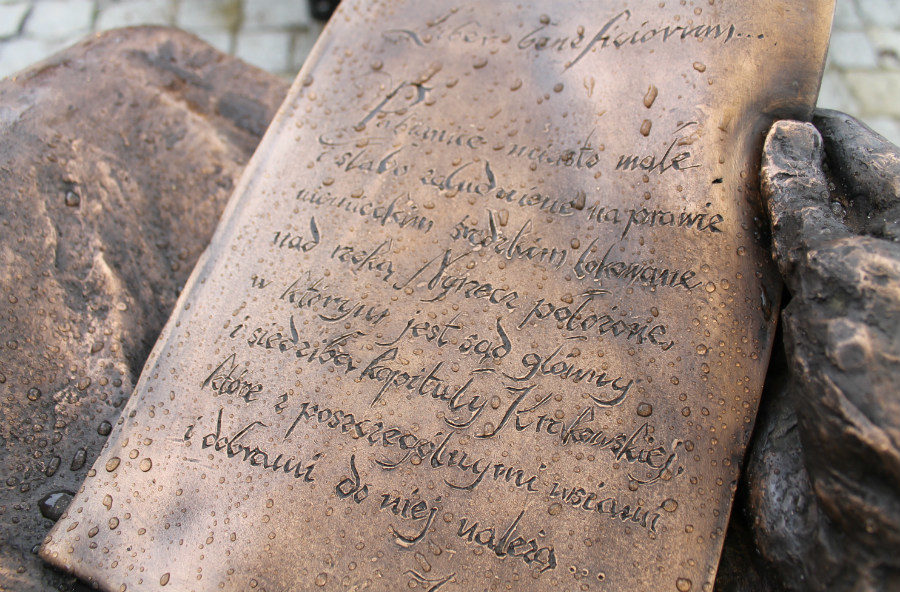 Liber beneficiorum...
Pabianice miasto małe
i słabo zaludnione na prawie
niemieckim średzkim lokowane
nad rzeką Ngrzecz położone,
w którym jest sąd główny
i siedziba kapituły Krakowskiej,
które z poszczególnymi wsiami
i dobrami do niej należą...